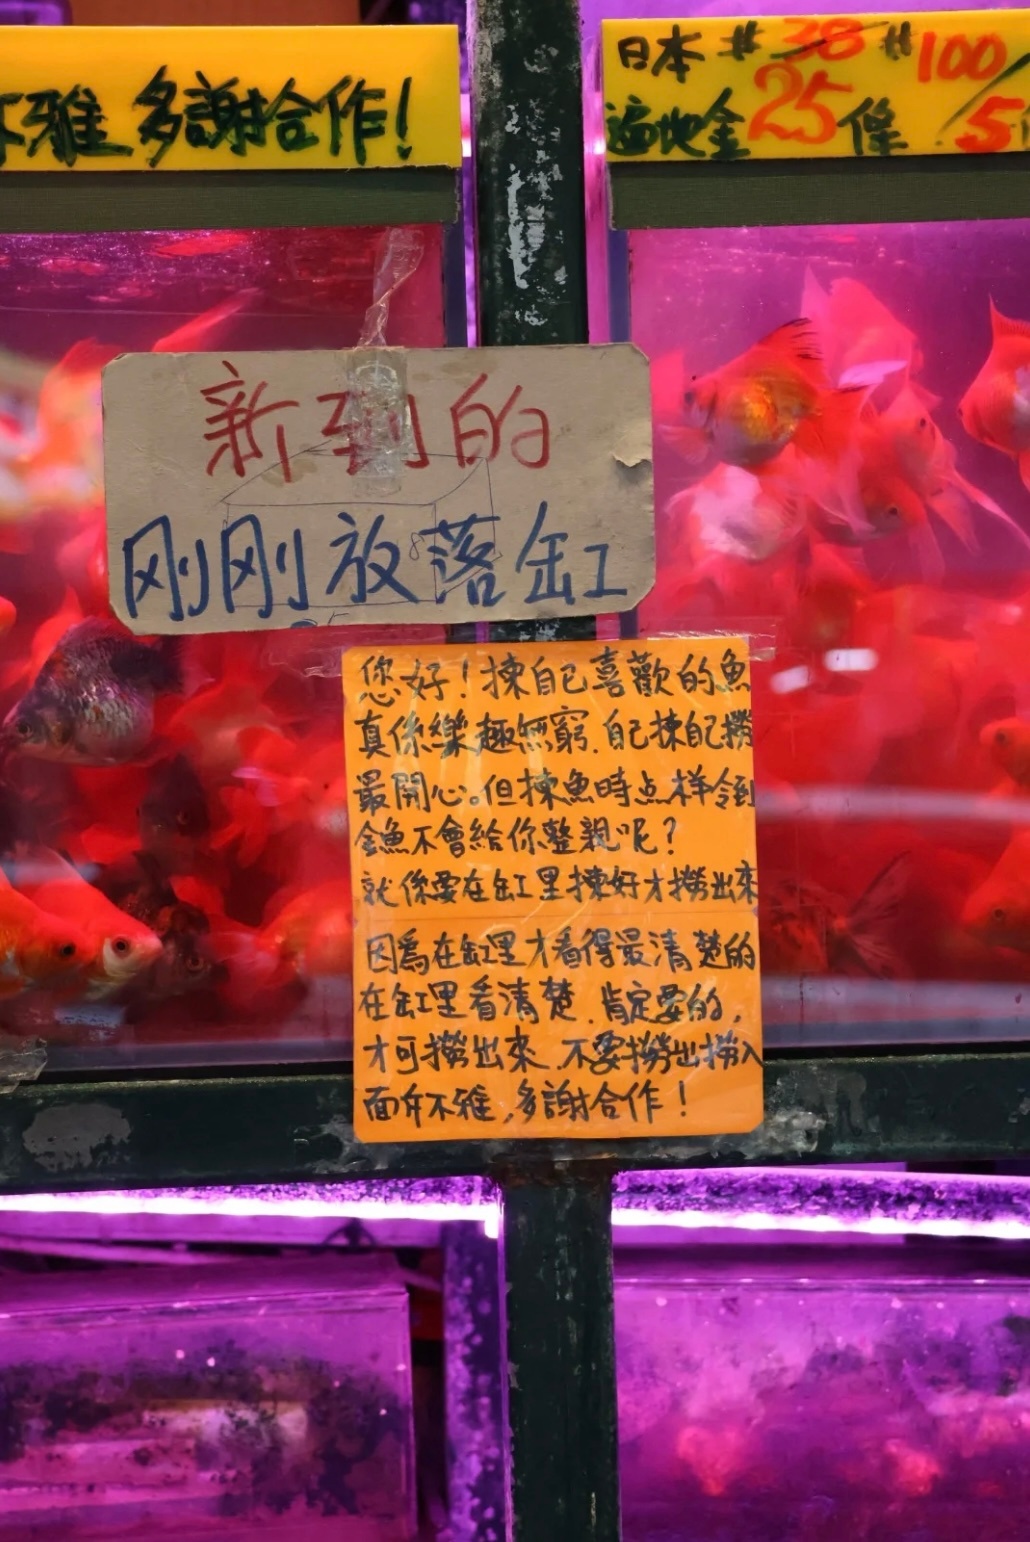 不雅 多謝合作!
日本 #38 #100/
遍地金 25條 5
新到的
刚刚放落缸
您好!揀自己喜歡的魚
真係樂趣無窮.自己揀自己撈
最開心。但揀魚時点样令到
金魚不會給你整親呢?
就係要在缸里揀好才撈出來
因為在缸里才看得最清楚的
在缸里看清楚.肯定要的,
才可撈出來.不要撈出撈入
面斥不雅,多謝合作!